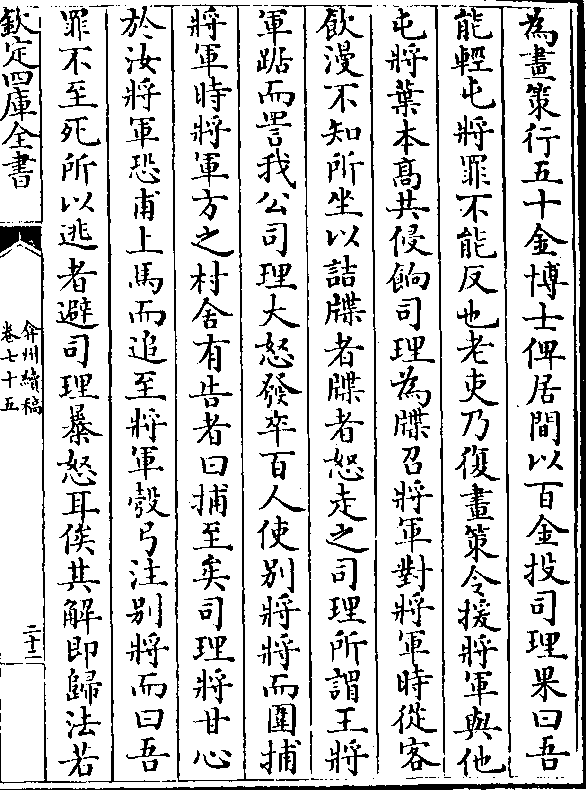 為畫策行五十金博士俾居間以百金投司理果曰吾
能輕屯將罪不能反也老吏乃復畫策令援將軍與他
屯將葉本高共侵餉司理為牒召將軍對將軍時從客
飲漫不知所坐以詰牒者牒者怒走之司理所謂王將
軍踞而詈我公司理大怒發卒百人使别將將而圍捕
將軍時將軍方之村舍有告者曰捕至矣司理將甘心
於汝將軍恐甫上馬而追至將軍彀弓注别將而曰吾
罪不至死所以逃者避司理暴怒耳俟其解即歸法若
欽定四庫全書
弇州續稿
卷七十五
二十二